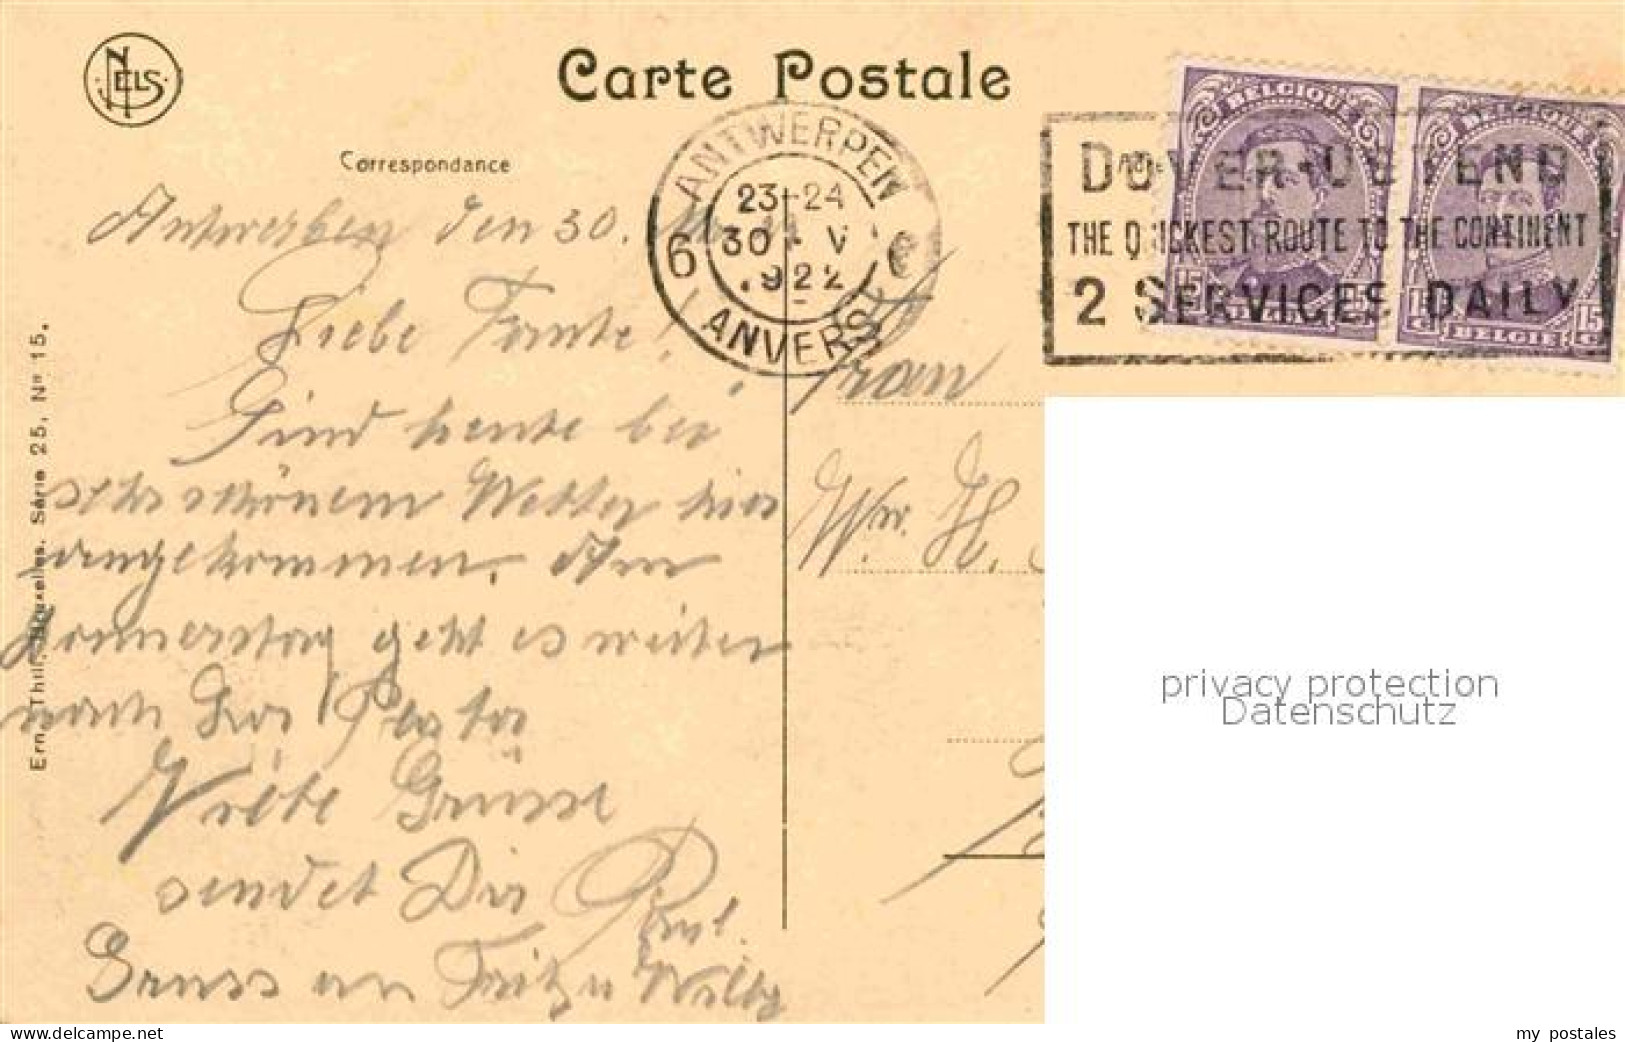 NELS
Carte Postale
Correspondance
ANTWERPEN
23-24
30 V
1922
6 6
ANVERS
BELGIQUE BELGIQUE
DOVER-OSTEND
THE QUICKEST ROUTE TO THE CONTINENT
2 SERVICES DAILY
15 15 15
BELGIË BELGIË
Antwerpen den 30.
Liebe Tante!
Sind heute bei
sehr schönem Wetter hier
angekommen. Am
Donnerstag geht es weiter
nach
Viele Grüsse
sendet Dir Paul.
Gruss an Fritz u Willy
Frau
Ww. H.
Ern. Thill, Bruxelles. Série 25, No 15.
privacy protection
Datenschutz
www.delcampe.net
my_postales